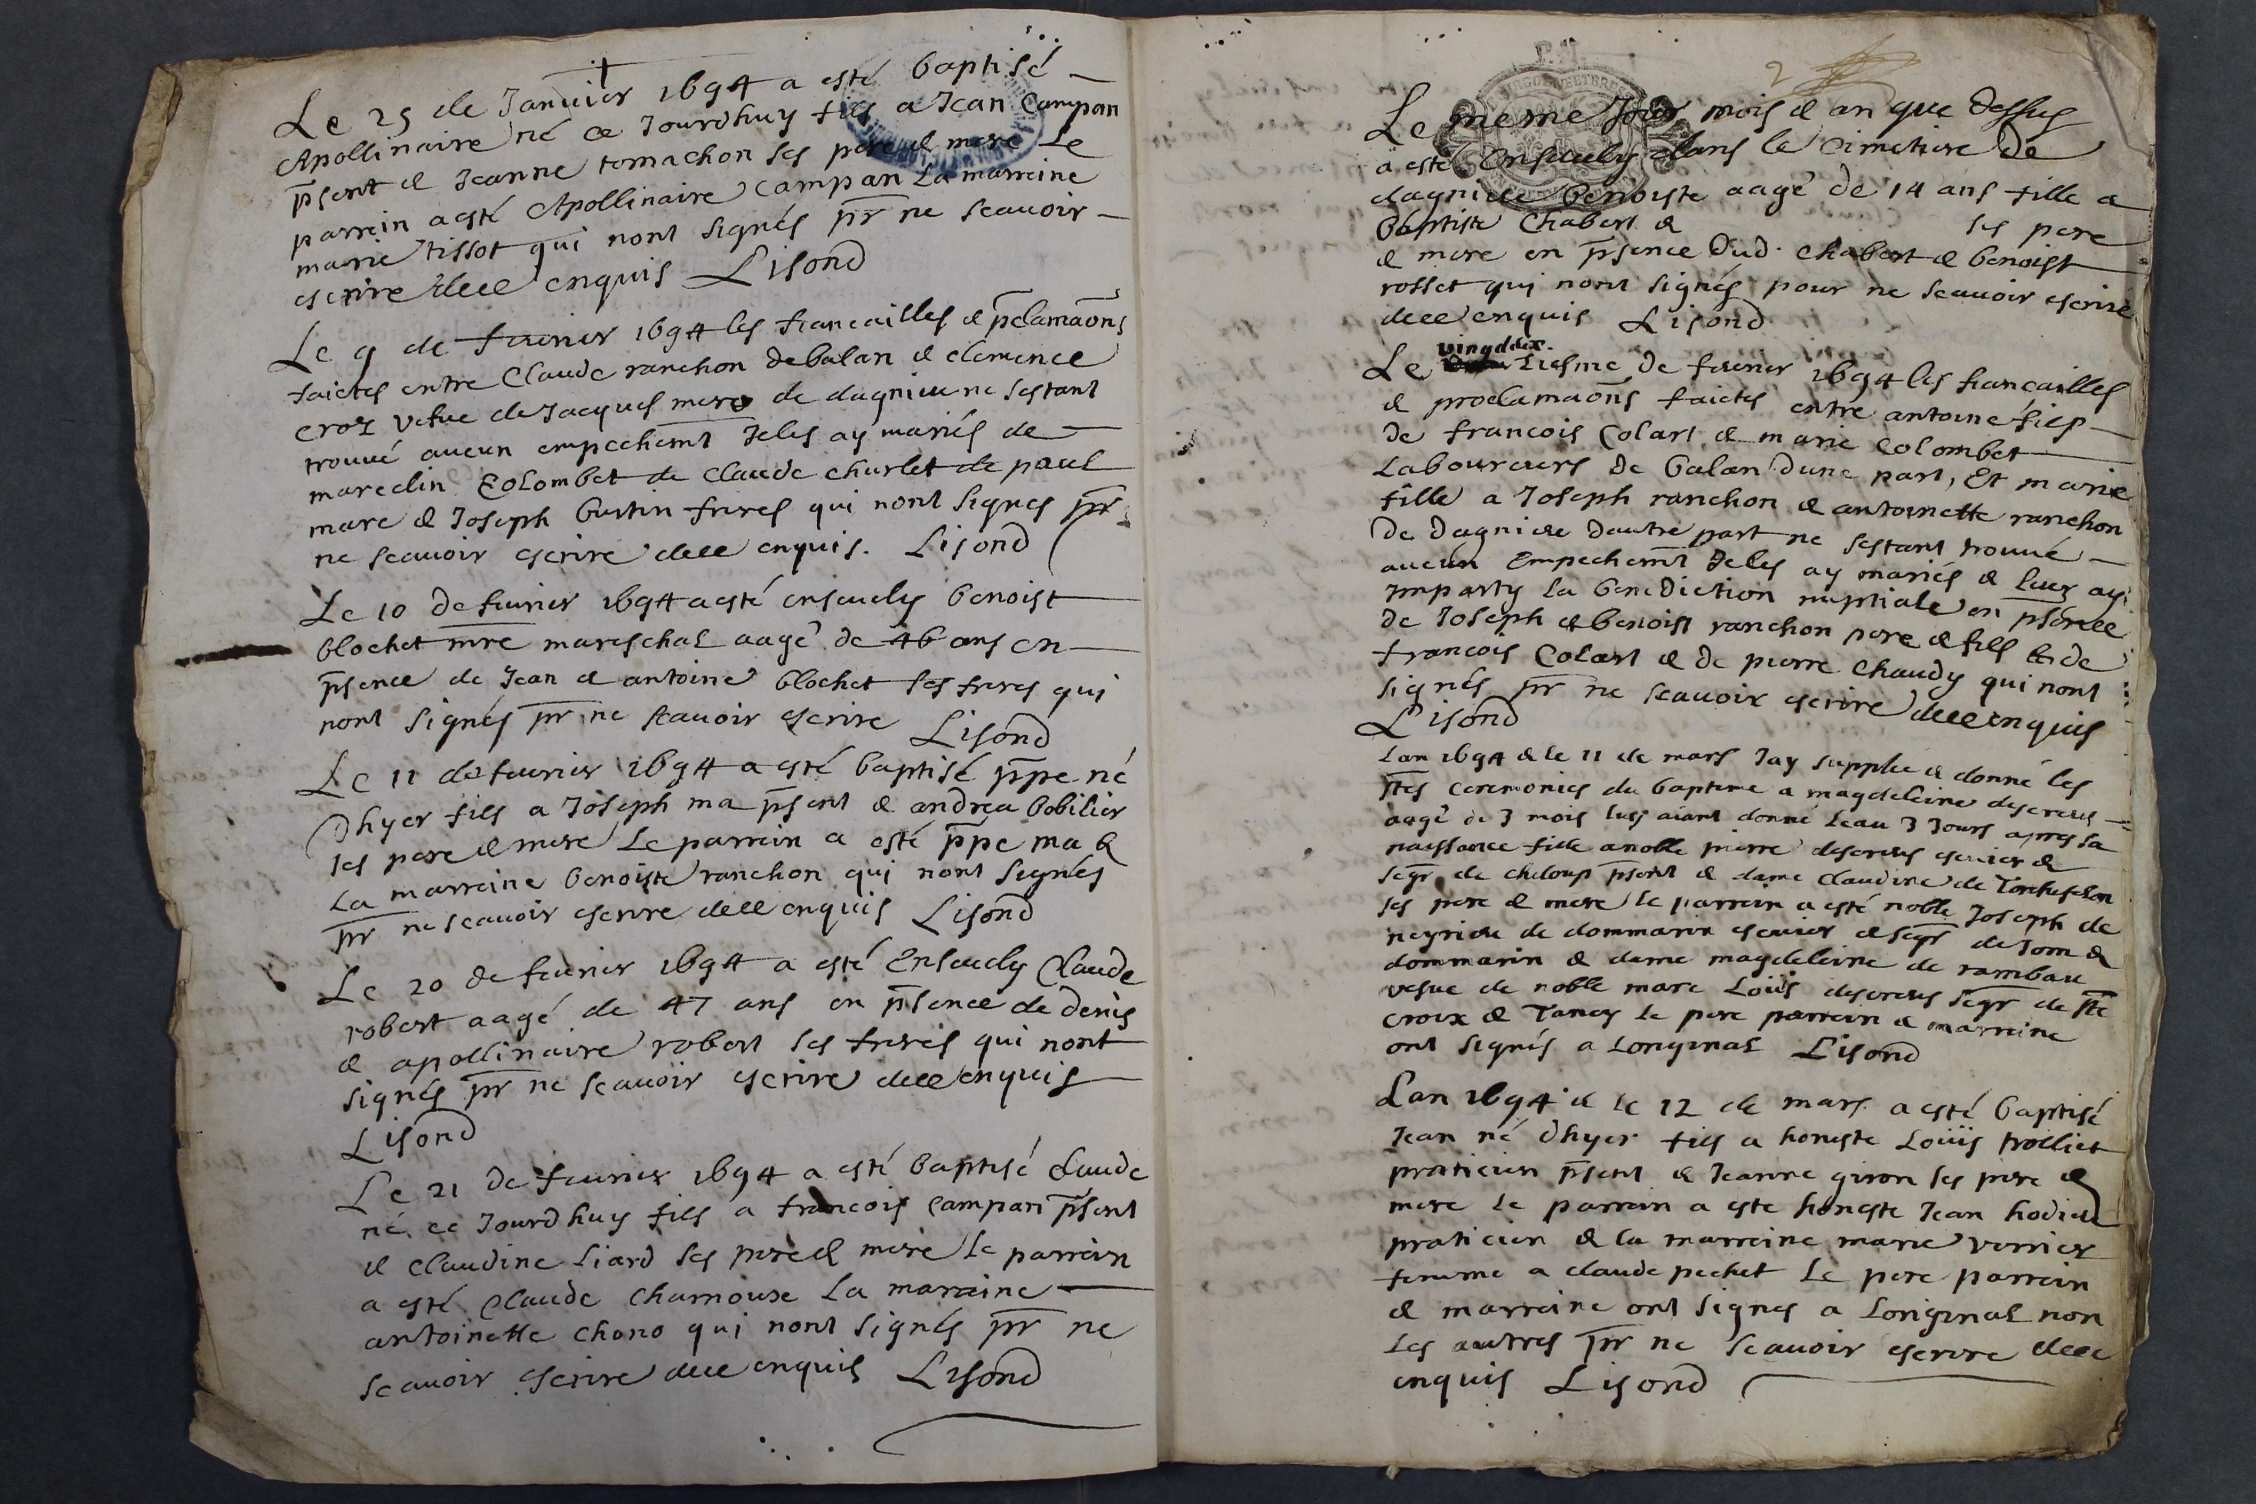 Le 25 de Januier 1694 a esté baptisé
Apollinaire né ce Jourdhuy fils a Jean Campan
pn̄sent & Jeanne tomachon ses pere & mere Le
parrein a esté Apollinaire Campan La marreine
marie tissot qui nont signés pr̄ ne scauoir
escrire de ce enquis Lisond
Le 9 de feurier 1694 les fiancailles & pc̄lamaōns
faictes entre Claude ranchon de balan & clemence
croz vefue de Jacques mere de dagnieu ne sestant
trouué aucun empechemt Je les ay mariés de
marcelin Colombet de Claude Charlet de paul
marc & Joseph Gustin freres qui nont signes pr̄
ne scauoir escrire de ce enquis. Lisond
Le 10 de feurier 1694 a esté enseuely benoist
blochet mre mareschal aagé de 46 ans en
pn̄sence de Jean & antoine blochet ses freres qui
nont signés pr̄ ne scauoir escrire Lisond
Le 11 de feurier 1694 a esté baptisé pp̄e né
Dhyer fils a Joseph ma pn̄sent & andrea bobilier
ses pere & mere Le parrein a esté pp̄e ma &
La marreine benoiste ranchon qui nont signés
pr̄ ne scauoir escrire de ce enquis Lisond
Le 20 de feurier 1694 a esté Enseuely Claude
robert aagé de 47 ans en pn̄sence de denis
& apollinaire robert ses freres qui nont
signés pr̄ ne scauoir escrire de ce enquis
Lisond
Le 21 de feurier 1694 a esté baptisé Claude
né ce Jourdhuy fils a francois Campan pn̄sent
& Claudine Liard ses pere & mere Le parrein
a esté Claude Charnoux La marreine
antoinette chano qui nont signés pr̄ ne
scauoir escrire de ce enquis Lisond
2
Le meme Jour mois & an que dessus
a esté Enseuely dans le cimetiere de
dagnieu benoiste aagé de 14 ans fille a
baptiste Chabert & ses pere
& mere en pn̄sence dud. Chabert & benoist
rosset qui nont signés pour ne scauoir escrire
de ce enquis Lisond
vingddx.
Le Liesme de feurier 1694 les fiancailles
& proclamaōns faictes entre antoine fils
de francois Colart & marie Colombet
Laboureurs de balan dune part, Et marie
fille a Joseph ranchon & antoinette ranchon
de dagnieu dautre part ne sestant trouué
aucun Empechemt Je les ay mariés & leur ay
Imparty la benediction nuptiale en pn̄sence
de Joseph & benoist ranchon pere & fils & de
francois Colart & de pierre Chaudy qui nont
signés pr̄ ne scauoir escrire de ce enquis
Lisond
Lan 1694 & le 11 de mars Jay supplée & donné les
stes ceremonies du bapteme a magdeleine descreus
aagé de 3 mois luy aiant donné Leau 3 Jours apres sa
naissance fille a noble pierre descreus escuier &
segr de chiloup pn̄sent & dame Claudine de Torchefelon
ses pere & mere le parrein a esté noble Joseph de
neyrieu de dommarin escuier & segr de Jom &
dommarin & dame magdeleine de rambau
vesue de noble marc Loüis descreus segr de ste
croix & Tancy Le pere parrein & marreine
ont signés a Longinal Lisond
Lan 1694 & le 12 de mars a esté baptisé
Jean né dhyer fils a honeste Loüis trolliet
praticien pn̄sent & Jeanne giron ses pere &
mere Le parrein a este honeste Jean hodieu
praticien & la marreine marie verrier
femme a claude pechet Le pere parrein
& marreine ont signes a Loriginal non
Les autres pr̄ ne scauoir escrire de ce
enquis Lisond